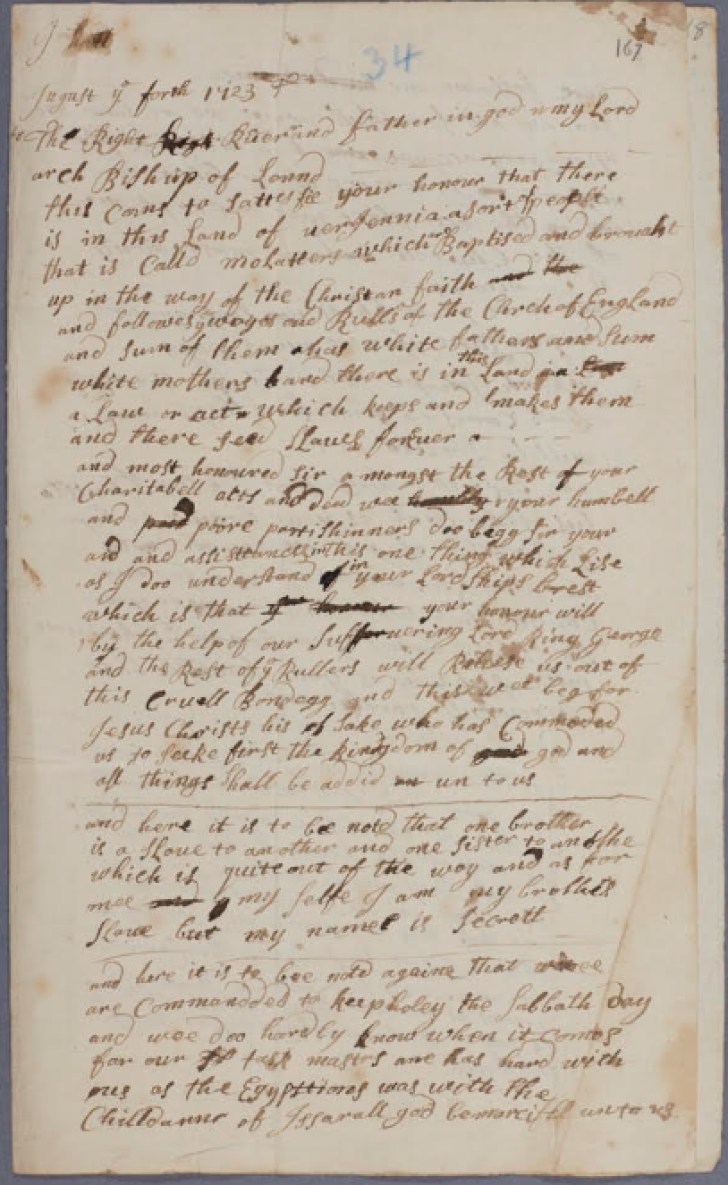 34
167
August yᵉ forth 1723
to The Right Raverrand father in god my Lord
arch Bishup of Lonnd
this coms to sattesfie your honour that there
is in this Land of verjennia a sort of people
that is Calld molatters which are Baptised and brouaht
up in the way of the Christian faith and the
and followes yᵉ wayes and Rulles of the Chrch of England
and sum of them has white fathers and sum
white mothers and there is in this Land a Law
a Law or act which keeps and makes them
and there seed Slaves forever
and most honoured sir a mongst the Rest of your
Charitabell acts and deed wee your humbell
and poore parrishinners doo begg Sir your
aid and assisttancce in this one thing which Lise
as I doo understand in your LordShips brest
which is that your honour will
by the help of our Suffervering Lord King George
and the Rest of yᵉ Rullers will Releese us out of
this Cruell Bondegg and this wee beg for
Jesus Christs his Sake who has Commaded
us to seeke first the kingdom of god and
all things shall be addid un to us
and here it is to bee notd that one brother
is a Slave to another and one Sister to an othe
which is quite out of the way and as for
mee my selfe I am my brothers
Slave but my name is Secrett
and here it is to bee notd againe that wee
are Commandded to keep holey the Sabbath day
and wee doo hardly know when it comes
for our task mastrs are has hard with
us as the Egypttions was with the
Chilldann of Issarall god be marcifll unto us